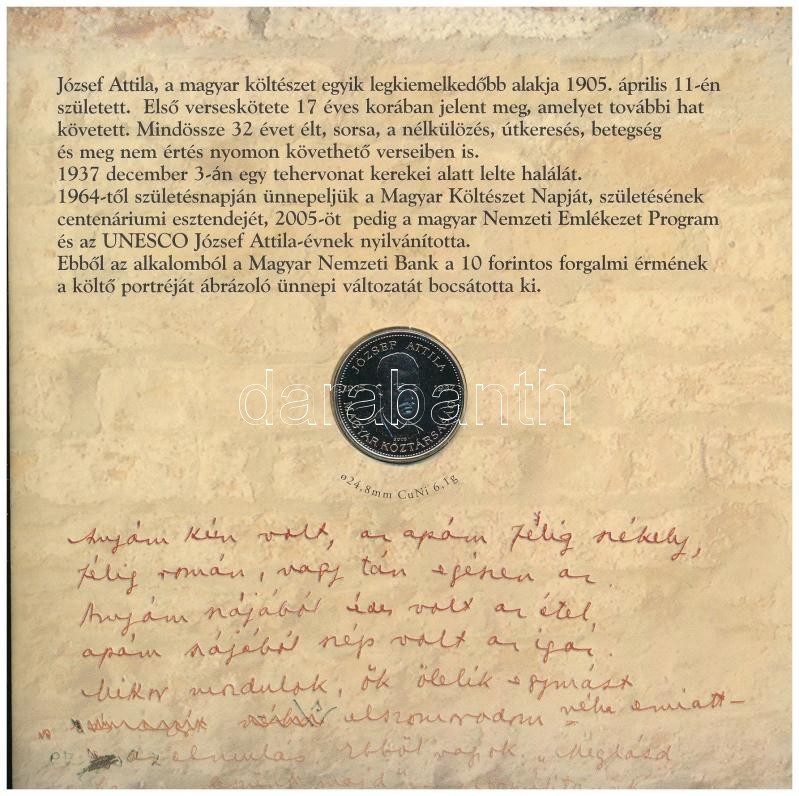 József Attila, a magyar költészet egyik legkiemelkedőbb alakja 1905. április 11-én
született. Első verseskötete 17 éves korában jelent meg, amelyet további hat
követett. Mindössze 32 évet élt, sorsa, a nélkülözés, útkeresés, betegség
és meg nem értés nyomon követhető verseiben is.
1937 december 3-án egy tehervonat kerekei alatt lelte halálát.
1964-től születésnapján ünnepeljük a Magyar Költészet Napját, születésének
centenáriumi esztendejét, 2005-öt pedig a magyar Nemzeti Emlékezet Program
és az UNESCO József Attila-évnek nyilvánította.
Ebből az alkalomból a Magyar Nemzeti Bank a 10 forintos forgalmi érmének
a költő portréját ábrázoló ünnepi változatát bocsátotta ki.
JÓZSEF ATTILA
darabanth
MAGYAR KÖZTÁRSASÁG
ø24,8mm CuNi 6,1g
Anyám kún volt, az apám félig székely,
félig román, vagy tán egészen az.
Anyám szájából édes volt az étel,
apám szájából szép volt az igaz.
Mikor mozdulok, ők ölelik egymást
elszomorodom néha emiatt –
az elmulás. Ebből vagyok. „Meglásd